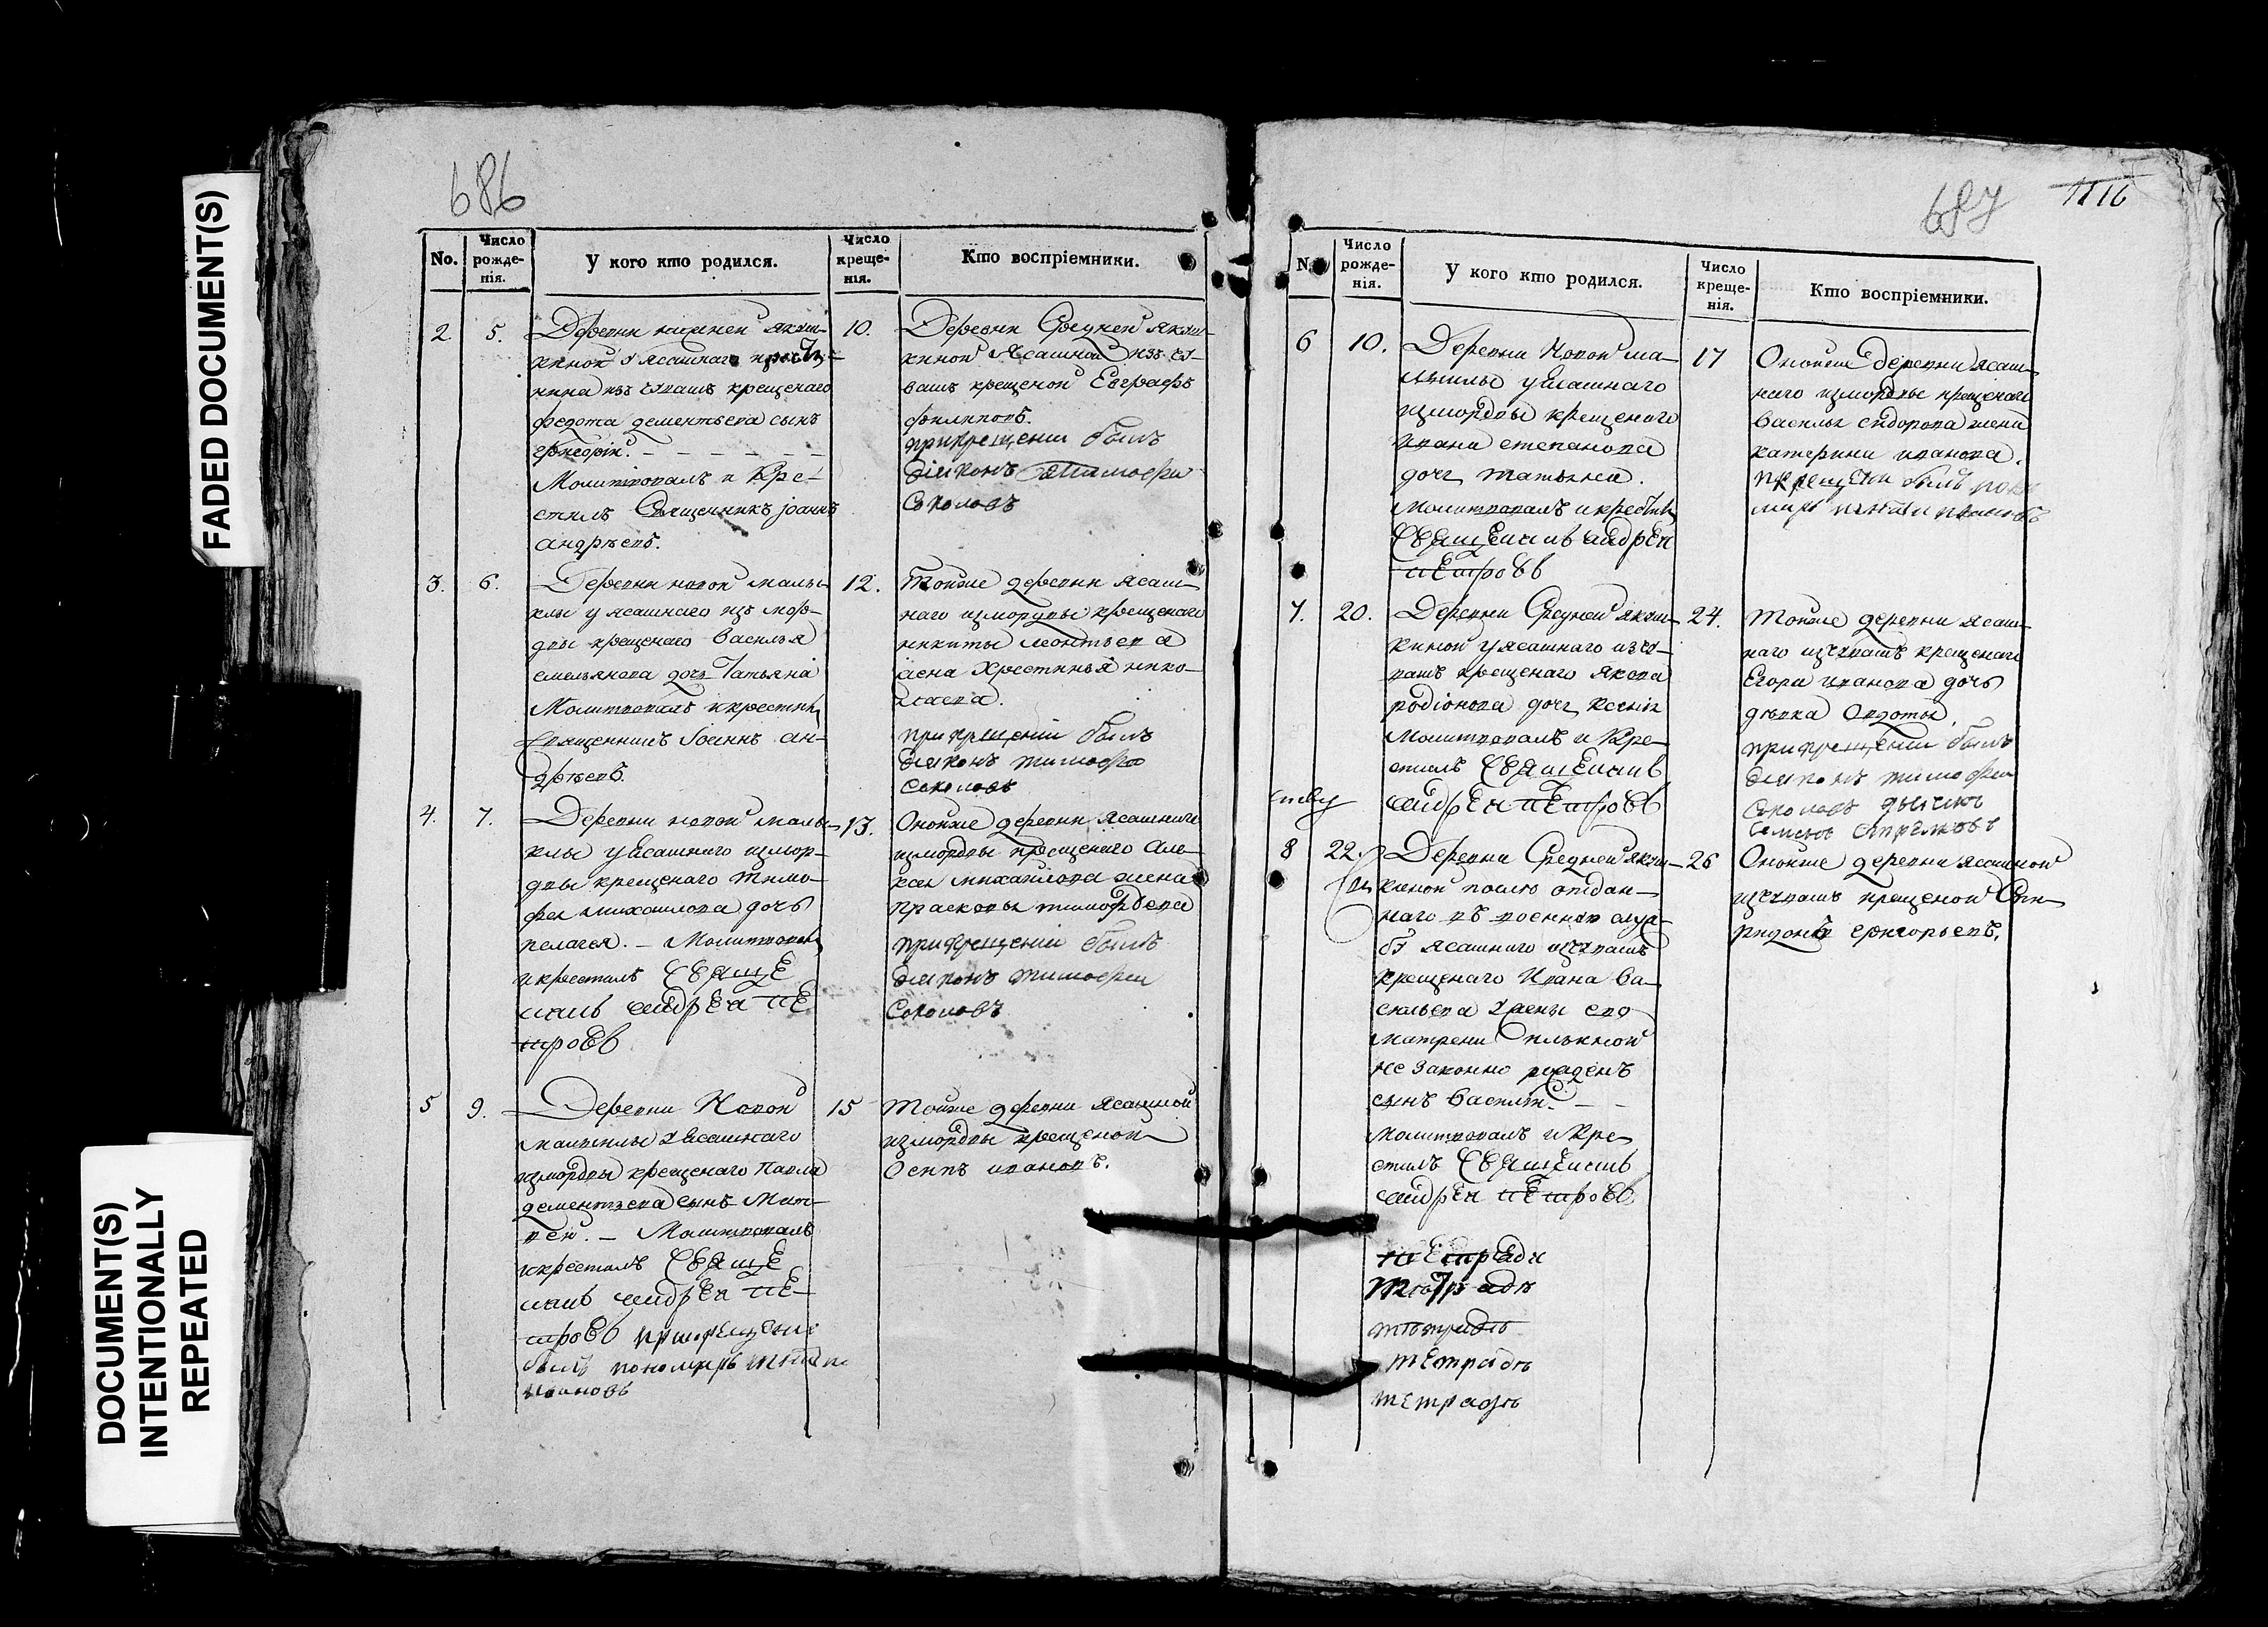 FADED DOCUMENT(S)
DOCUMENT(S)
INTENTIONALLY
REPEATED
686
No.
Число
рожде-
нія.
У кого кто родился.
Число
креще-
нія.
Кто воспріемники.
2
5.
Деревни нижней якуш-
киной у ясашнаго крестья-
нина изъ чувашъ крещенаго
федота дементьева сынъ
григорій.
Молитвовалъ и Кре-
стилъ Священникъ Іоаннъ
андрѣевъ.
10.
Деревни Средней якуш-
киной Ясашной изъ чу-
вашъ крещеной Евграфъ
филиповъ.
прикрещеніи былъ
діяконъ Тимофеи
Соколовъ
3.
6.
Деревни новой малы-
клы у ясашнаго изъ мор-
двы крещенаго Василья
емельянова дочь Татьяна
Молитвовалъ и крестилъ
священникъ Іоаннъ ан-
дрѣевъ.
12.
Тойже деревни ясаш-
наго измордвы крещенаго
никиты леонтьева
жена Хрестинья нико-
лаева.
прикрещеніи былъ
діяконъ тимофеи
Соколовъ
4.
7.
Деревни новой малы-
клы у ясашнаго измор-
двы крещенаго Тимо-
фея михаилова дочь
пелагея. – Молитвовалъ
и крестилъ СвящЕ
никъ андрЕи пЕ
тровъ
13.
Онойже деревни Ясашнаго
измордвы крещенаго Але-
ксея михаилова жена
Прасковья тимофѣева
прикрещеніи былъ
діяконъ тимофеи
Соколовъ
5
9.
Деревни Новой
малыклы у Ясашнаго
измордвы крещенаго Павла
дементьева сынъ Мат-
вей. – Молитвовалъ
и крестилъ СвящЕ
никъ андрЕи пЕ-
тровъ прикрещени
былъ пономарь
Ивановъ
15
Тойже деревни Ясашной
измордвы крещеной
Осипъ ивановъ.
687
1116
N
Число
рожде-
нія.
У кого кто родился.
Число
креще-
нія.
Кто воспріемники.
6
10.
Деревни Новой ма-
лыклы у Ясашнаго
измордвы крещенаго
ивана степанова
дочь татьяна.
Молитвовалъ и крестилъ
СвящЕникъ андрЕи
пЕтровъ
17
Онойже деревни ясаш-
наго измордвы крещенаго
Василья сидорова жена
катерина иванова.
крещени былъ поно
марь ивановъ
7.
20.
Деревни Средней якуш-
киной у ясашнаго изъ чу-
вашъ крещенаго Якова
родіонова дочь Ксенія
Молитвовалъ и Кре-
стилъ СвящЕникъ
андрЕи пЕтровъ
24.
Тойже деревни ясаш-
наго изчувашъ крещенаго
Егора иванова дочь
дѣвка Авдотья.
прикрещеніи былъ
діяконъ тимофеи
Соколовъ дьячекъ
8
22.
Деревни Средней якуш-
киной послѣ отдан-
наго въ военную служ-
бу ясашнаго изчувашъ
крещенаго Ивана Ва-
сильева у жены его
матрены Ильиной
не законно рожденъ
сынъ Василій.
молитвовалъ и Кре-
стилъ СвящЕникъ
андрЕи пЕтровъ
26
Онойже деревни ясашной
изчувашъ крещеной Спи-
ридонъ григорьевъ.
тетрадь
тетрадь
тетрадь